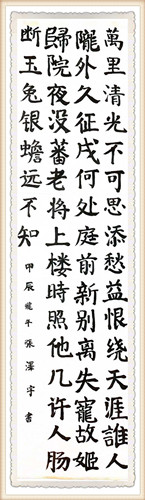 萬里清光不可思添愁益恨绕天涯誰人
隴外久征戍何处庭前新别离失寵故姬
歸院夜没蕃老将上楼時照他几许人肠
断玉兔银蟾远不知
甲辰龍年張澤宇書